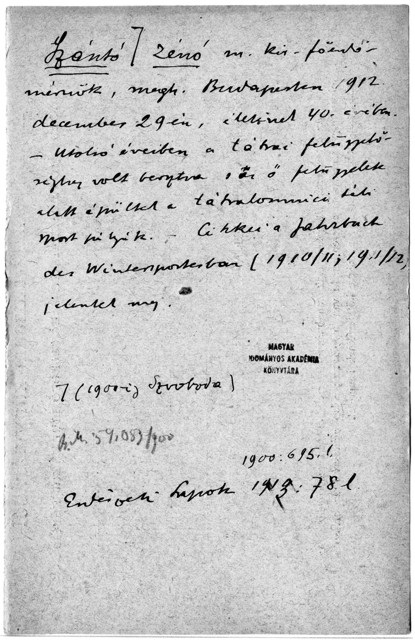 Szántó ⁊ Zénó m. kir. főerdő-
mérnök, megh. Budapesten 1912.
december 29-én, életének 40. évében.
– Utolsó éveiben a tátrai felügyelő-
séghez volt beosztva s az ő felügyelete
alatt épültek a tátralomnici téli
sport pályák. – Cikkei a Jahrbuch
des Wintersportesban (1910/11, 1911/12)
jelentek meg.
MAGYAR
TUDOMÁNYOS AKADÉMIA
KÖNYVTÁRA
⁊ (1900-ig Szvoboda)
B.M. 59,083/900
1900. 695. l.
Erdészeti Lapok 1913: 78 l.